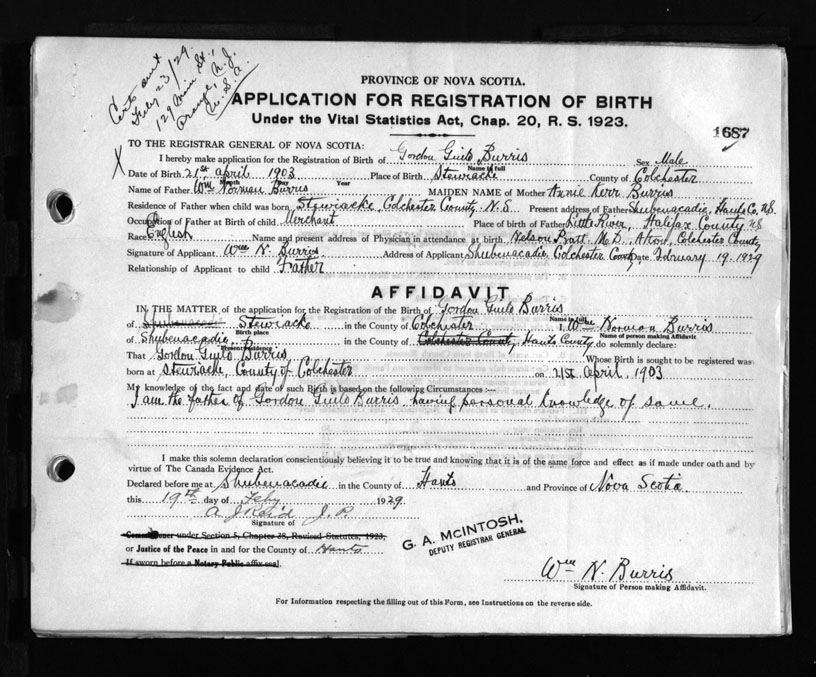 Certs sent
Feby 23/29.
129 Main St.,
Orange, N.J.
U.S.A.
PROVINCE OF NOVA SCOTIA.
APPLICATION FOR REGISTRATION OF BIRTH
Under the Vital Statistics Act, Chap. 20, R. S. 1923.
1687
TO THE REGISTRAR GENERAL OF NOVA SCOTIA:
X
I hereby make application for the Registration of Birth of Gordon Guilo Burris Sex Male
Name in full
Date of Birth 21st April 1903 Place of Birth Stewiacke County of Colchester
Month Day Year
Name of Father Wm Norman Burris MAIDEN NAME of Mother Annie Kerr Burris
Residence of Father when child was born Stewiacke Colchester County N.S Present address of Father Shubenacadie, Hants Co. N.S.
Occupation of Father at Birth of child Merchant Place of birth of Father Little River, Halifax County NS
Race English Name and present address of Physician in attendance at birth Nelson Pratt M.D. Alton, Colchester County
Signature of Applicant Wm N. Burris Address of Applicant Shubenacadie, Colchester County Date February 19-1929
Relationship of Applicant to child Father
AFFIDAVIT
IN THE MATTER of the application for the Registration of the Birth of Gordon Guilo Burris
Name in full
of Shubenacadie Stewiacke in the County of Colchester I, Wm Norman Burris
Birth place Name of person making Affidavit
of Shubenacadie, in the County of Colchester County, Hants County, do solemnly declare:
Present residence
That Gordon Guilo Burris Whose Birth is sought to be registered was
born at Stewiacke, County of Colchester on 21st April, 1903
My knowledge of the fact and date of such Birth is based on the following Circumstances:—
I am the father of Gordon Guilo Burris, having personal knowledge of same.
I make this solemn declaration conscientiously believing it to be true and knowing that it is of the same force and effect as if made under oath and by
virtue of The Canada Evidence Act.
Declared before me at Shubenacadie in the County of Hants and Province of Nova Scotia.
this 19th day of Feby 1929.
A J Reid J.P.
Signature of
Commissioner under Section 5, Chapter 38, Revised Statutes, 1923,
or Justice of the Peace in and for the County of Hants
If sworn before a Notary Public affix seal.
G. A. McINTOSH.
DEPUTY REGISTRAR GENERAL
Wm N. Burris
Signature of Person making Affidavit.
For Information respecting the filling out of this Form, see Instructions on the reverse side.